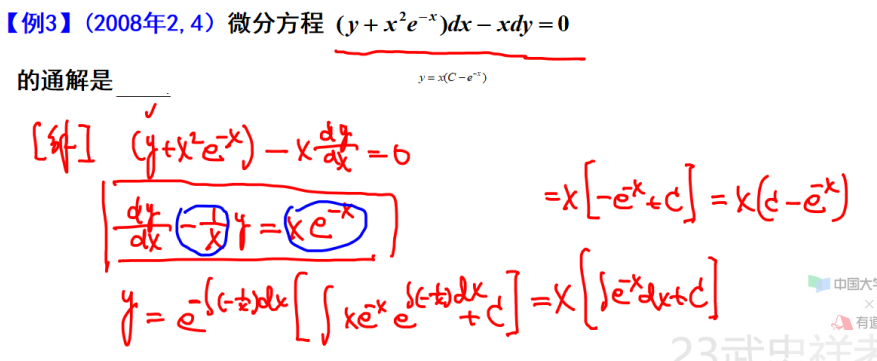 【例3】(2008年2,4) 微分方程 (y + x²e⁻ˣ)dx − xdy = 0
的通解是 ______.
y = x(C − e⁻ˣ)
[解] (y+x²e⁻ˣ) − x dy/dx = 0
dy/dx − 1/x y = xe⁻ˣ
y = e^(−∫(−1/x)dx) [∫ xe⁻ˣ e^(∫(−1/x)dx) dx + C] = x[∫e⁻ˣdx+C]
= x[−e⁻ˣ+C] = x(C−e⁻ˣ)
中国大学
×
有道
23武忠祥考